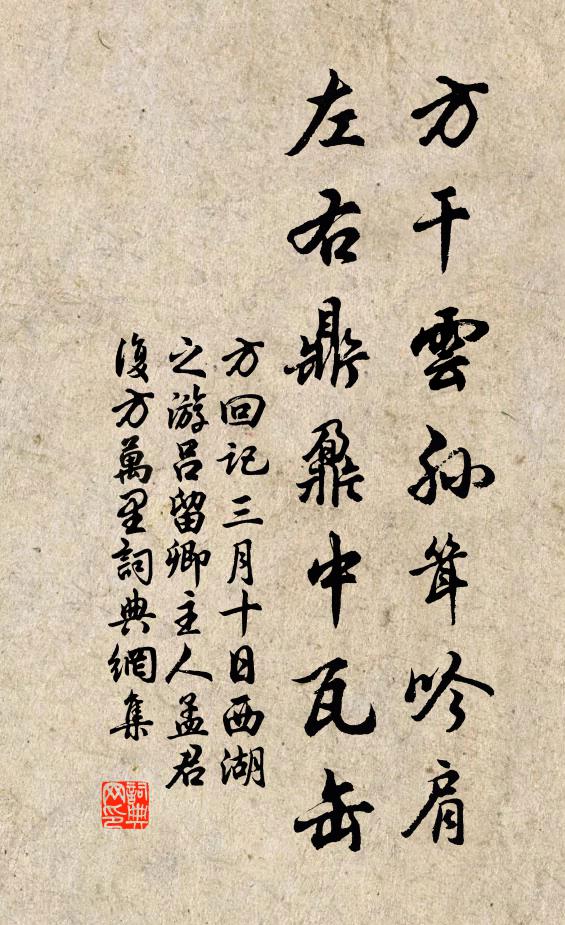 方干雲孫聳吟肩
左右鼎鼐中瓦缶
方回記三月十日西湖
之游呂留卿主人孟君
復方萬里詞典網集
詞典
网印